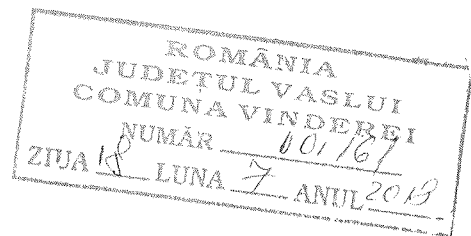 ROMÂNIA
JUDEȚUL VASLUI
COMUNA VINDEREI
NUMĂR
ZIUA 18 LUNA 7 ANUL 2018